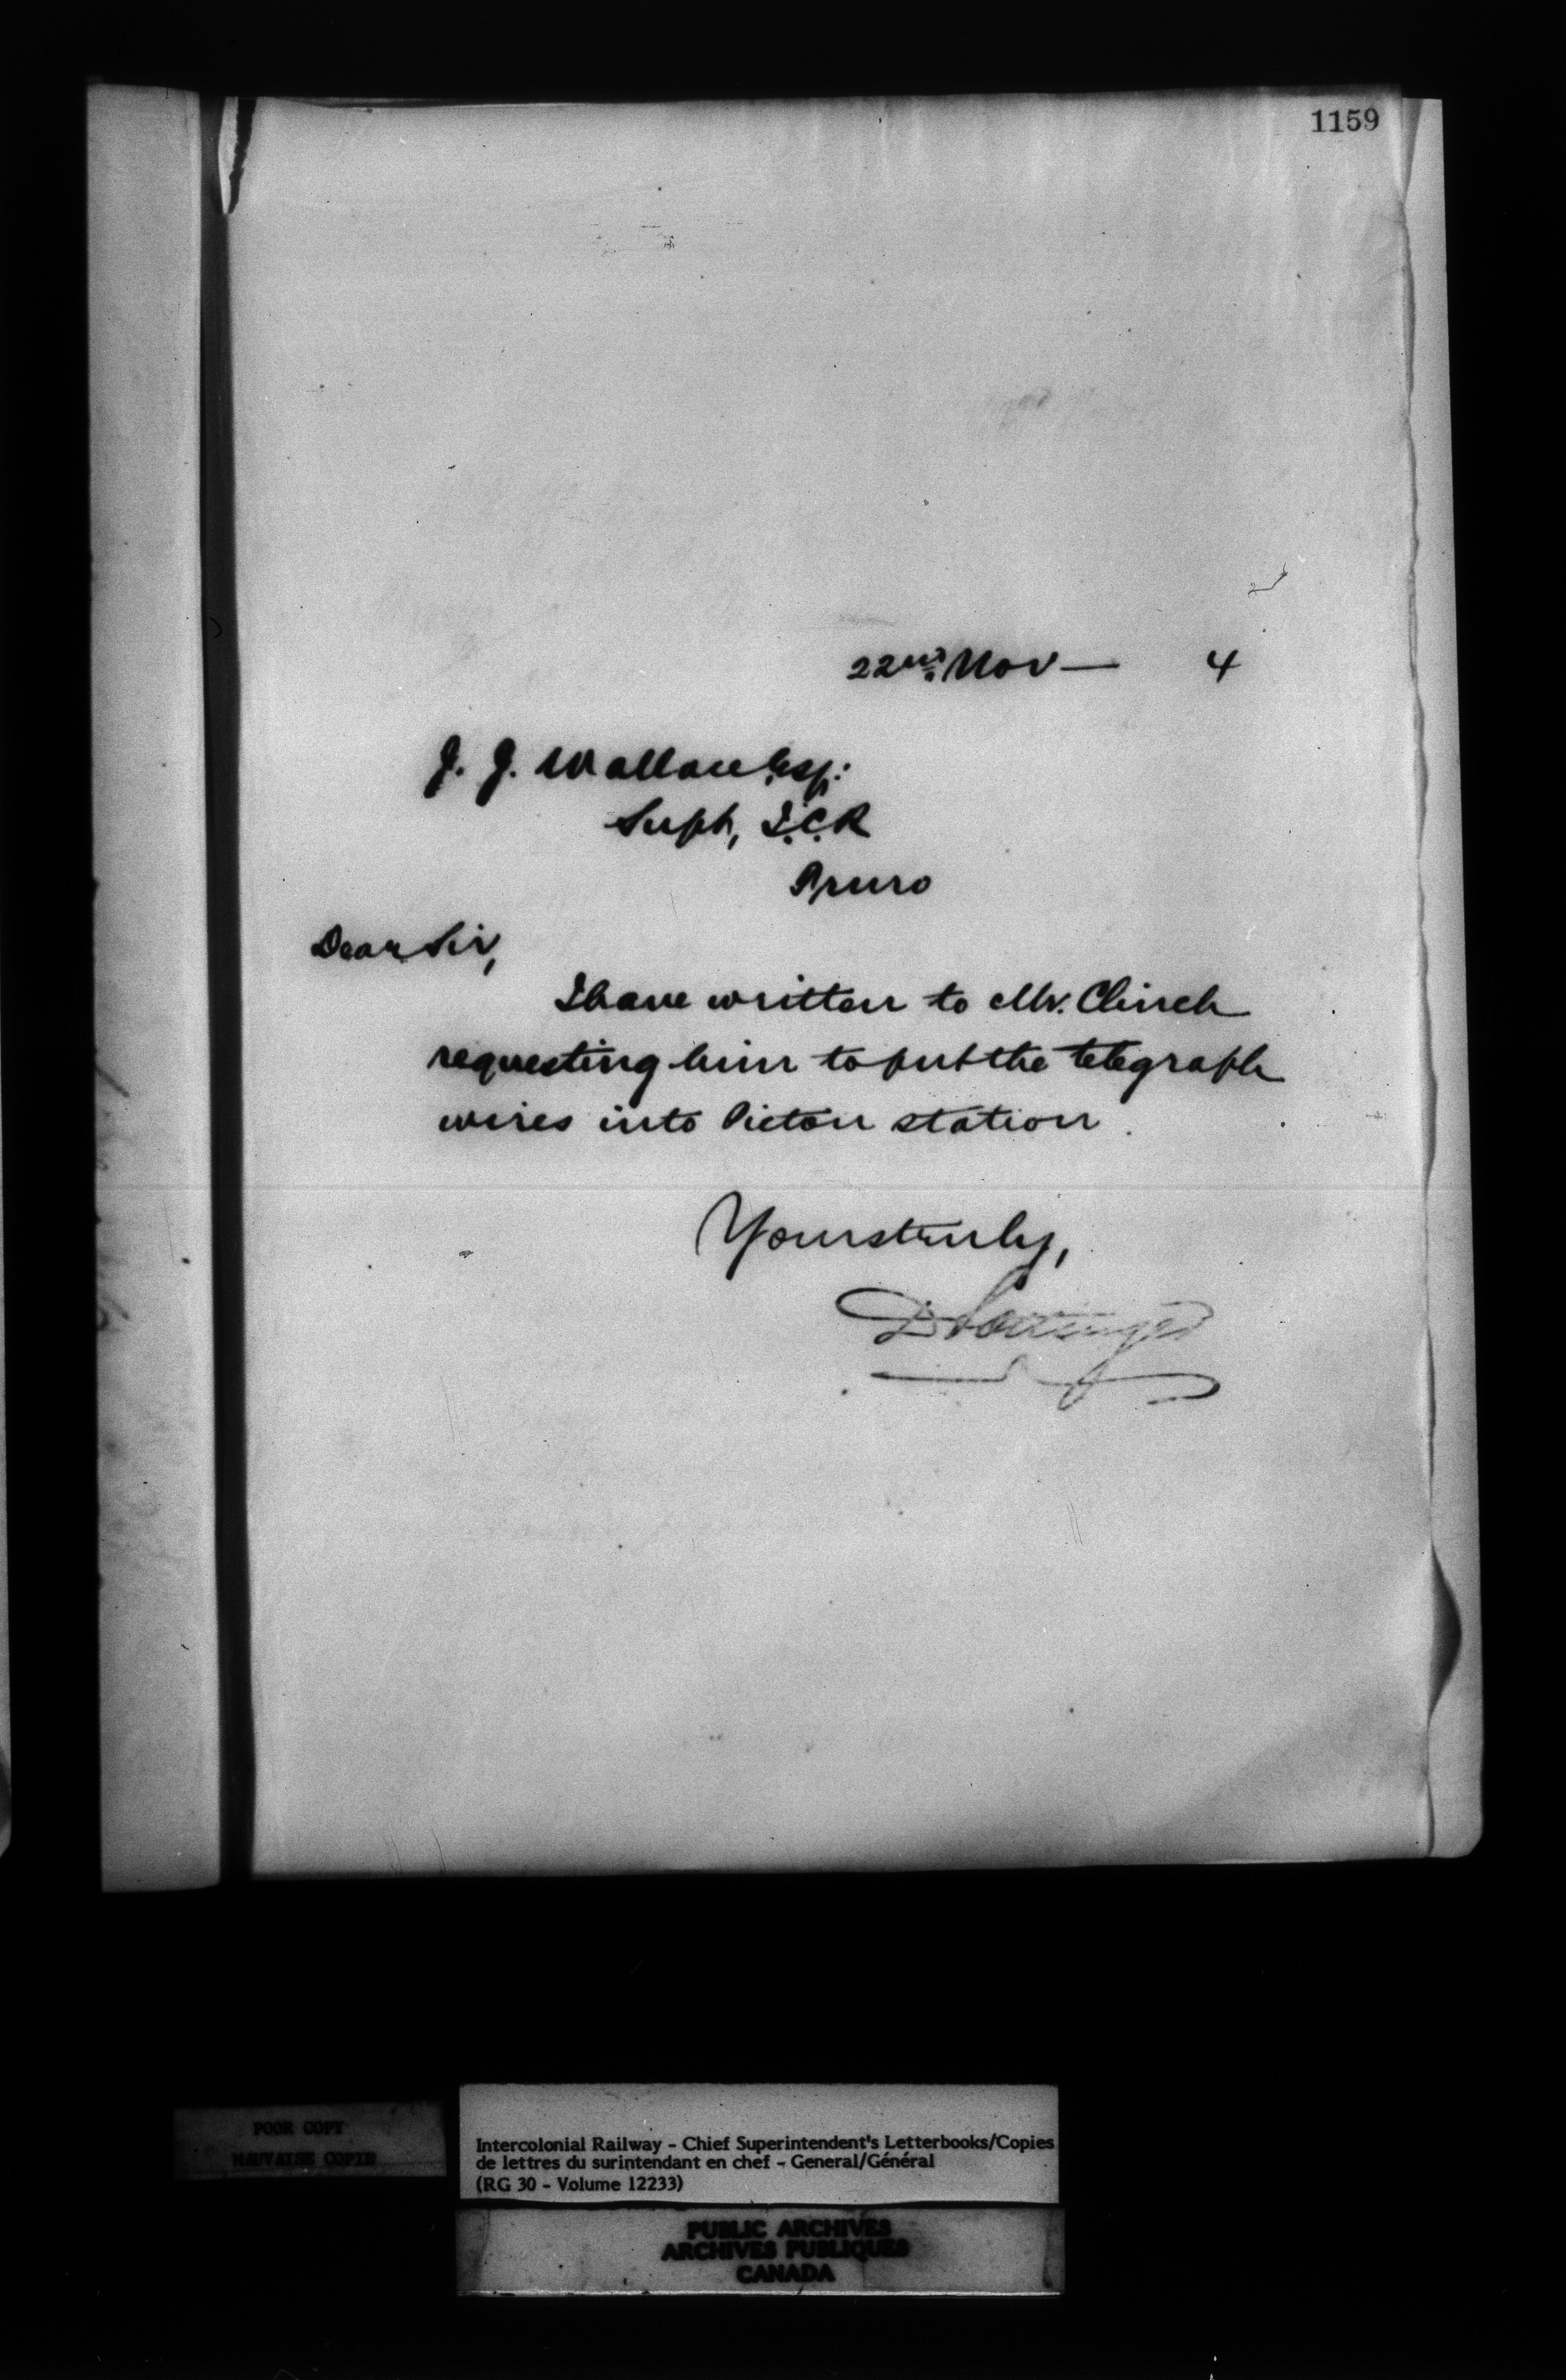 1159
22nd Nov — 4
J. J. Wallace Esq:
Supt, I.C.R
Truro
Dear Sir,
I have written to Mr. Clinch
requesting him to put the telegraph
wires into Pictou station.
Yours truly,
D Pottinger
POOR COPY
MAUVAISE COPIE
Intercolonial Railway - Chief Superintendent's Letterbooks/Copies
de lettres du surintendant en chef - General/Général
(RG 30 - Volume 12233)
PUBLIC ARCHIVES
ARCHIVES PUBLIQUES
CANADA